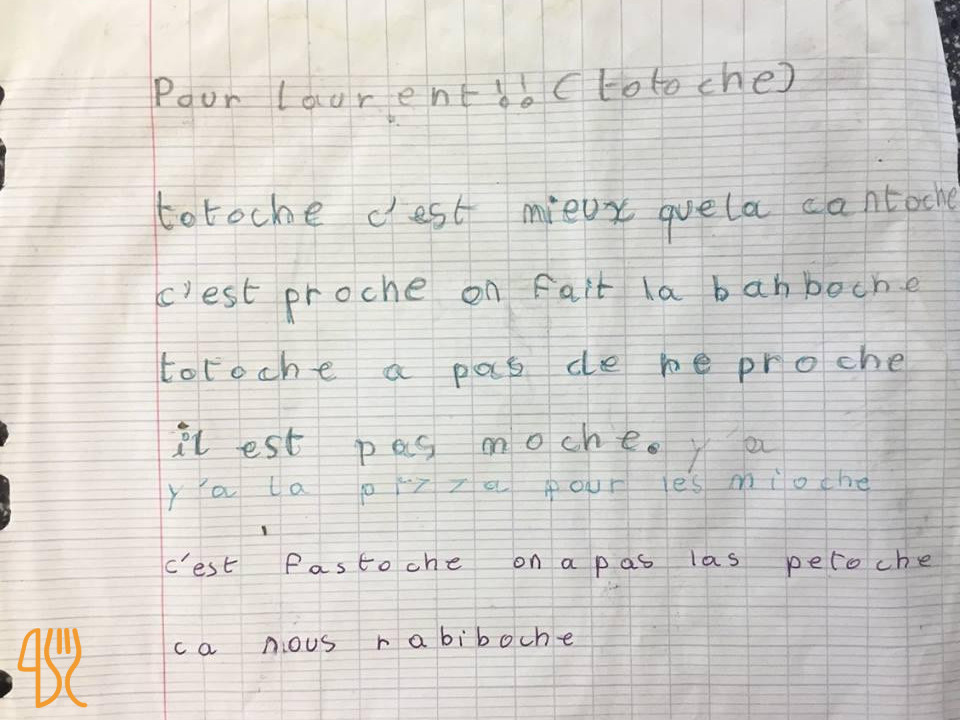 Pour laurent!! (totoche)
totoche c'est mieux que la cantoche
c'est proche on fait la banboche
totoche a pas de reproche
il est pas moche. y a
y'a la pizza pour les mioche
c'est fastoche on a pas las petoche
ca nous rabiboche